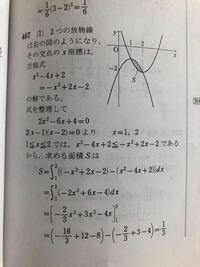 = 1/6 (3-2)³ = 1/6
467 (1) 2つの放物線
は右の図のようになり，
その交点のx座標は，
方程式
x²-4x+2
=-x²+2x-2
の解である。
式を整理して
2x²-6x+4=0
2(x-1)(x-2)=0 より x=1, 2
1≦x≦2では，x²-4x+2≦-x²+2x-2である
から，求める面積Sは
S=∫₁²{(-x²+2x-2)-(x²-4x+2)}dx
=∫₁²(-2x²+6x-4)dx
=[-2/3 x³+3x²-4x]₁²
=(-16/3+12-8)-(-2/3+3-4)=1/3
y
O
1
2
x
-2
S